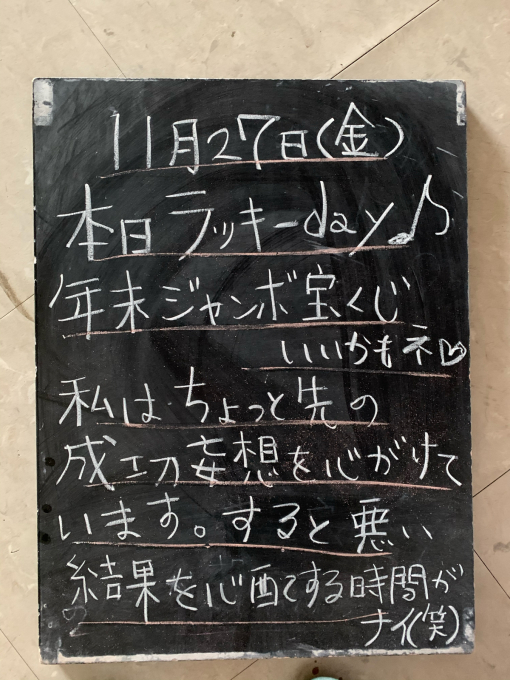 11月27日(金)
本日ラッキーday♪
年末ジャンボ宝くじ
いいかもネ♡
私はちょっと先の
成功妄想を心がけて
います。すると悪い
結果を心配する時間が
ナイ(笑)